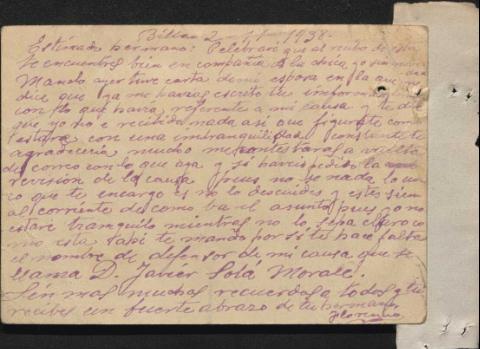 Bilbao 2 - 1938.
Estimado hermano: Celebraré que al recibo de esta
te encuentres bien en compañia de la chica, yo sin
Manolo ayer tuve carta de mi esposa en la que me
dice que ya me habias escrito
con lo que haya referente a mi causa y te digo
que no he recibido nada asi que figurate como
estaré con una intranquilidad constante te
agradeceria mucho me contestaras a vuelta
de correo con lo que aga y si habeis pedido la
revisión de la causa pues no se nada lo uni
co que te encargo es no lo descuides y estes siem
al corriente de como ba el asunto pues yo no
estare tranquilo mientras no lo sepa
esta tapi te mando por si te hace falta
el nombre de defensor de mi causa que se
llama D. Javier Sola Morale.
Sin mas muchos recuerdos a todos y tu
recibes un fuerte abrazo de tu hermano
Florencio